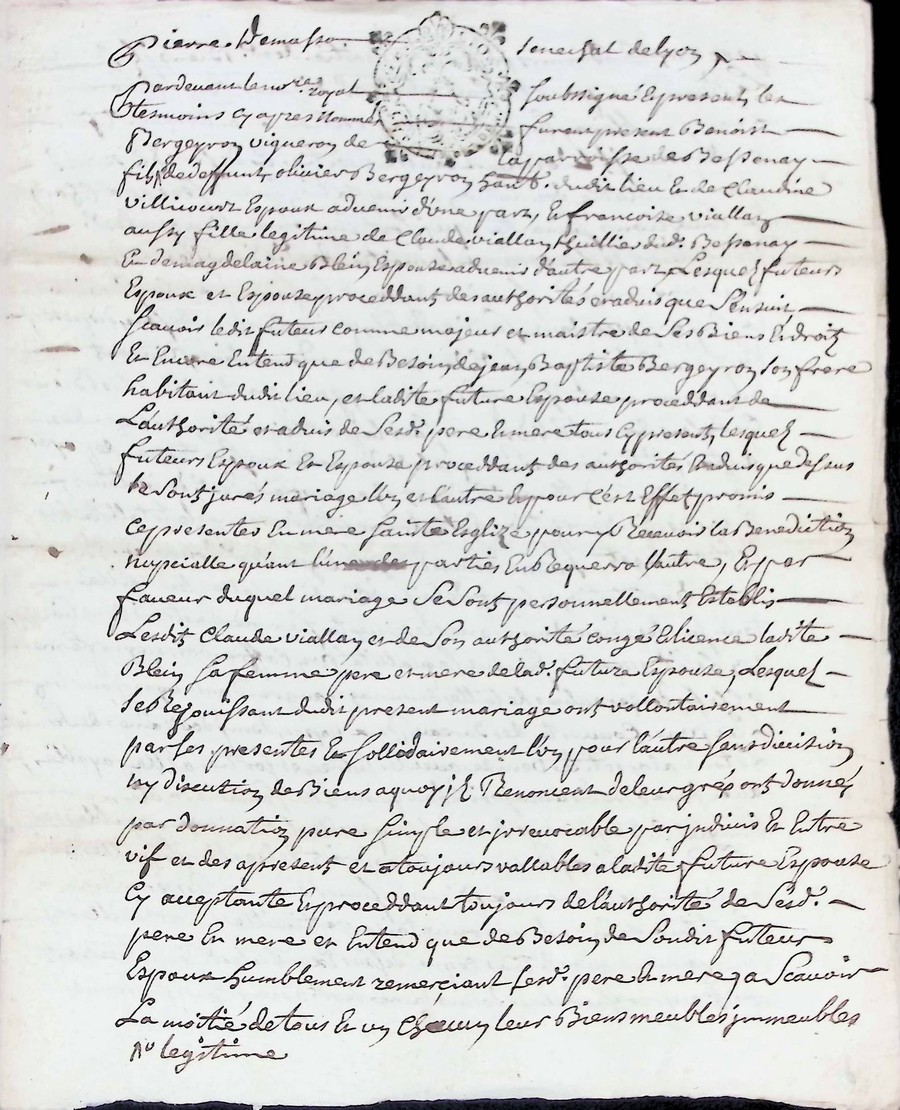 Pierre Demasso seneschal de lyon
Pardevant le no.re royal soubssigné Et presents les
tesmoins Cy apres nommés furent present Benoist
Bergeyron vigneron de la parroisse de Bessenay
fils de deffunt olivier Bergeyron hant. dudit lieu Et de Claudine
villicourt Espoux advenir d'une part, Et francoise viallan
aussy fille legitime de Claude viallan huillie dud. Bessenay
Et de magdelaine Blein Espouse advenir d'autre part Lesquels futeurs
Espoux et Espouse proceddant des authorités et advis que S'ensuit
Scavoir ledit futeur comme majeur et maistre de Ses Biens Et droits
Et Encore Entend que de Besoin de jean Baptiste Bergeyron Son frere
habitant dudit lieu, et ladite future Espouse proceddant de
L'authorité et advis de Sesd. pere Et mere tous Cy presents lesquels
futeurs Espoux Et Espouse proceddant des authorités Et advis que dessus
se Sont jurés mariage l'un et l'autre Et pour C'est Effet promis
Ce presenter En mere Sainte Esglize pour y Recevoir la Benediction
nupcialle quant l'une des parties En Requerra l'autre, Et par
faveur duquel mariage Se Sont personnellement Establis
Lesdit Claude viallan et de Son authorité congé Et licence ladite
Blein Sa femme pere et mere de lad. future Espouse, Lesquels
se Rejouissant dudit present mariage ont vollontairement
par Ses presentes Et Sollidairement l'un pour l'autre Sans division
ny discution de Biens a quoy ils Renoncent de leur grés ont donnés
par donnation pure Simple et irrevocable par indivis Et Entre
vif et des a present et a toujours vallables a ladite future Espouse
Cy acceptante Et proceddant toujours de l'authorité de Sesd.
pere Et mere et Entend que de Besoin de Soudit futeur
Espoux humblement remerciant Sesd. pere Et mere, a Scavoir
La moitié de tous Et un Chacun leur Biens meubles immeubles
legitime